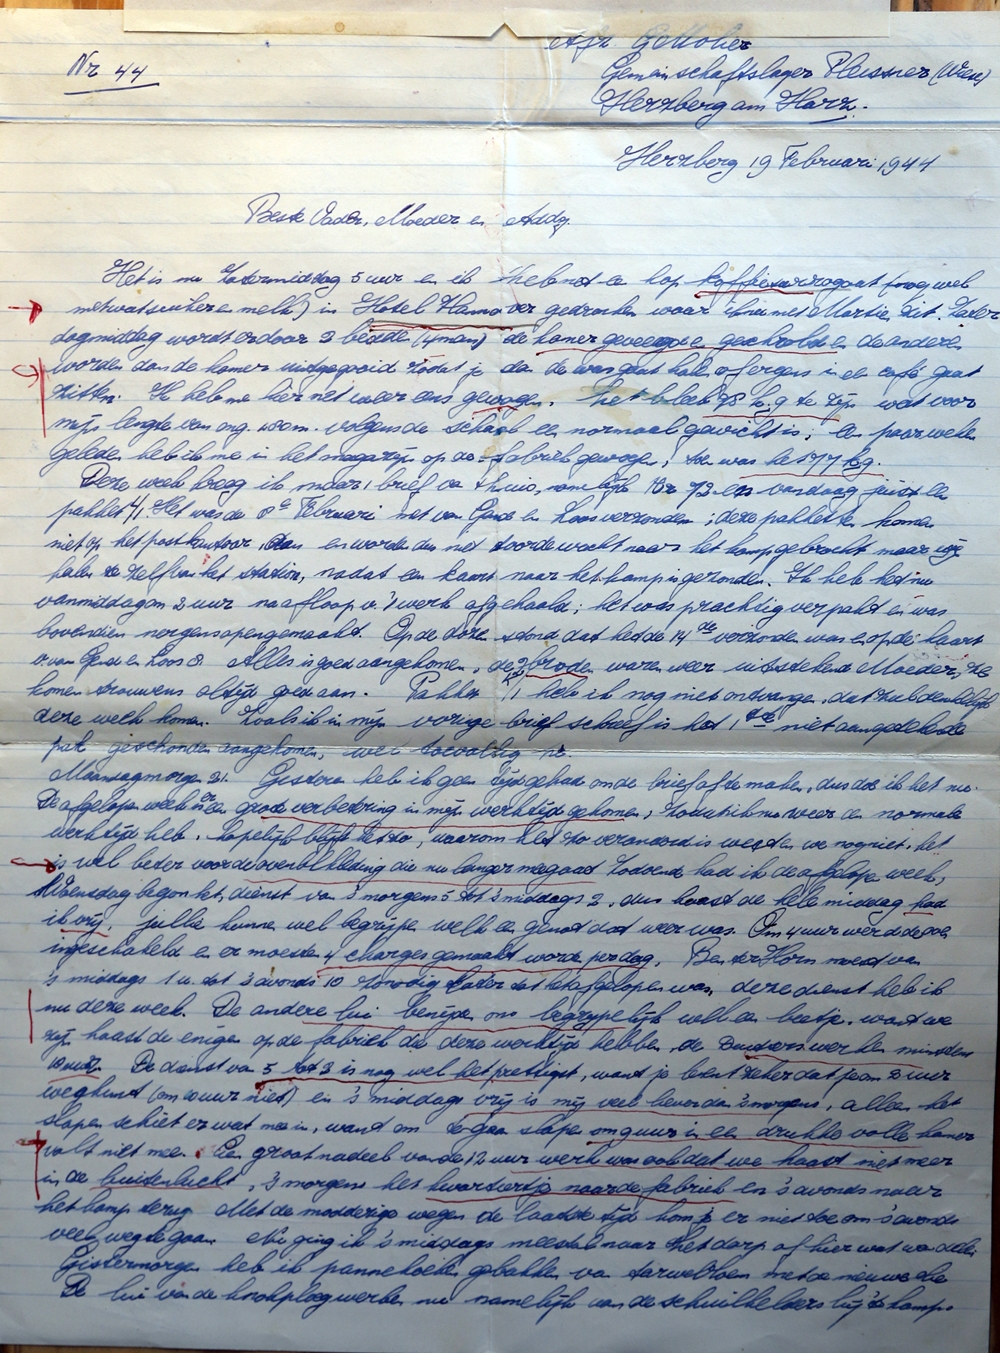 Nr 44
Afz. G. Moher
Gemeinschaftslager Pleissner (Wiese)
Herzberg am Harz.
Herzberg 19 Februari 1944
Beste Vader, Moeder en Addy.
Het is nu Zatermiddag 5 uur en ik heb net een kop koffiesurrogaat (nog wel
met wat suiker en melk) in Hotel Hannover gedronken waar ik nu met Martin zit. Zater
dagmiddag wordt er door 2 bedden (4 man) de kamer geveegd en geschrobd en de anderen
worden dan de kamer uitgegooid zodat je dan de was gaat halen of ergens in een café gaat
zitten. Ik heb me hier net weer eens gewogen. Het bleek 78 k.g. te zijn wat voor
mijn lengte van ong. volgens de schaal een normaal gewicht is; een paar weken
geleden heb ik me in het magazijn op de fabriek gewogen, toen was het 77 kg.
Deze week kreeg ik maar 1 brief van thuis, namelijk Nr 72 en vandaag juist een
pakket 4/1. Het was de 8e Februari met van Gend en Loos verzonden; deze pakketten komen
niet op het postkantoor aan en worden dus niet door de wacht naar het kamp gebracht maar wij
halen ze zelf van het station, nadat een kaart naar het kamp is gezonden. Ik heb het nu
vanmiddag om 2 uur na afloop v. 't werk afgehaald; het was prachtig verpakt en was
bovendien nergens opengemaakt. Op de doze stond dat het de 14de verzonden was en op de kaart
v. van Gend en Loos 8. Alles is goed aangekomen, de 2 broden waren weer uitstekend Moeder, ze
komen trouwens altijd goed aan. Pakket /1 heb ik nog niet ontvangen, dat zal denkelijk
deze week komen. Zoals ik in mijn vorige brief schreef is het 1ste niet aangetekende
pak geschonden aangekomen, wel toevallig hè
Maandagmorgen 21. Gisteren heb ik geen tijd gehad om de brief af te maken, dus doe ik het nu.
De afgelopen week is er een grote verbetering in mijn werktijd gekomen, zodat ik nu weer een normale
werktijd heb. Hopelijk blijft het zo, waarom het zo veranderd is weten we nog niet, het
is wel beter voor de ovenbekleding die nu langer meegaat. Zodoende had ik de afgelopen week,
Woensdag begon het, dienst van 's morgens 5 tot 's middags 2, dus haast de hele middag had
ik vrij. Jullie kunnen wel begrijpen welk een genot dat weer was. Om 4 uur werd de oven
ingeschakeld en er moesten 4 charges gemaakt worden per dag. Ben ter Horn moest van
's middags 1 u. tot 's avonds 10 zonodig later tot het afgelopen was, deze dienst heb ik
nu deze week. De andere lui benijden ons begrijpelijk wel een beetje, want we
zijn haast de enigen op de fabriek die deze werktijd hebben, de Duitsers werken minstens
10 uur. De dienst van 5 tot 2 is nog wel het prettigst, want je bent zeker dat je om 2 uur
weg kunt (om 10 uur niet) en 's middags vrij is mij veel liever dan 's morgens, alleen het
slapen schiet er wat mee in, want om te gaan slapen om 9 uur in een drukke volle kamer
valt niet mee. Een groot nadeel van de 12 uur werk was ook dat we haast niet meer
in de buitenlucht, 's morgens het kwartiertje naar de fabriek en 's avonds naar
het kamp terug. Met de modderige wegen de laatste tijd kom je er niet toe om 's avonds
veel weg te gaan. Nu ging ik 's middags meestal naar het dorp of hier wat wandelen
Gistermorgen heb ik pannekoeken gebakken van tarwebloem met de nieuwe olie
De lui van de knokploeg werken nu namelijk aan de schuilkelders bij 't kamp.